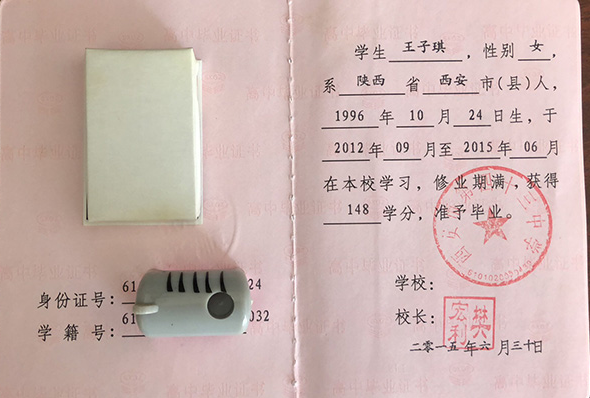 身份证号：61 24
学籍号：61 032
学生王子琪，性别女，
系陕西省西安市（县）人，
1996年10月24日生，于
2012年09月至2015年06月
在本校学习，修业期满，获得
148学分，准予毕业。
学校：
校长：
樊宏利
二零一五年六月三十日